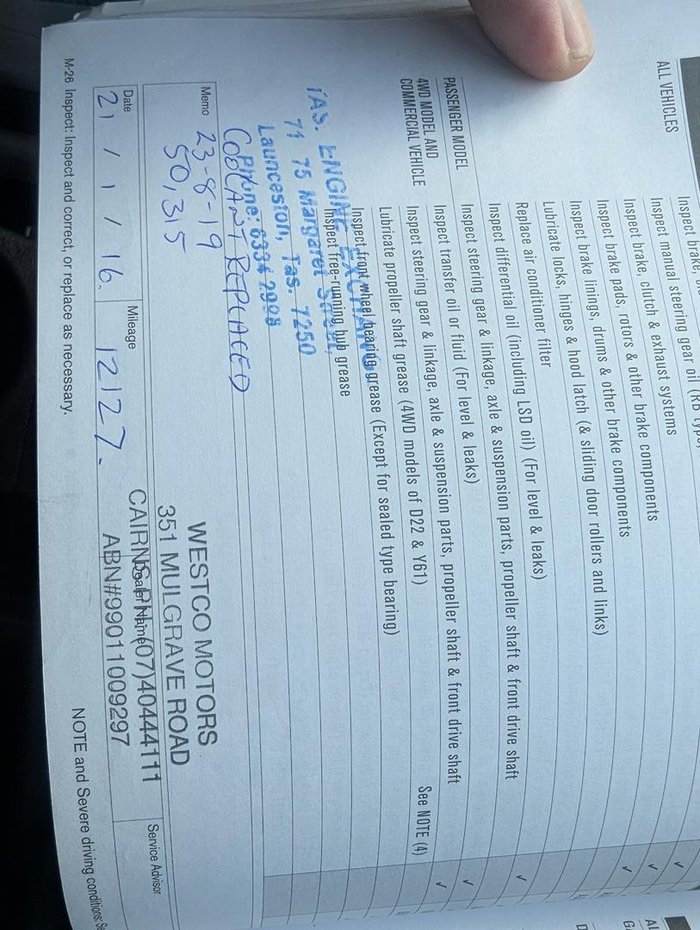 ALL VEHICLES
Inspect brake,
Inspect manual steering gear oil
Inspect brake, clutch & exhaust systems
Inspect brake pads, rotors & other brake components
Inspect brake linings, drums & other brake components
Inspect locks, hinges & hood latch (& sliding door rollers and links)
Replace air conditioner filter
PASSENGER MODEL
Inspect differential oil (including LSD oil) (For level & leaks)
Inspect steering gear & linkage, axle & suspension parts, propeller shaft & front drive shaft
4WD MODEL AND
COMMERCIAL VEHICLE
Inspect transfer oil or fluid (For level & leaks)
Inspect steering gear & linkage, axle & suspension parts, propeller shaft & front drive shaft
Lubricate propeller shaft grease (4WD models of D22 & Y61) See NOTE (4)
Inspect front wheel bearing grease (Except for sealed type bearing)
Inspect free-running hub grease
TAS. ENGINE EXCHANGE
71 75 Margaret Street,
Launceston, Tas. 7250
Phone: 6334 2998
COOLANT REPLACED
Memo 23-8-19
50,315
WESTCO MOTORS
351 MULGRAVE ROAD
CAIRNS PH (07)40444111
ABN#99011009297
Date 21 / 1 / 16.
Mileage 12127.
Dealer Name
Service Advisor
M-26 Inspect: Inspect and correct, or replace as necessary.
NOTE and Severe driving conditions: